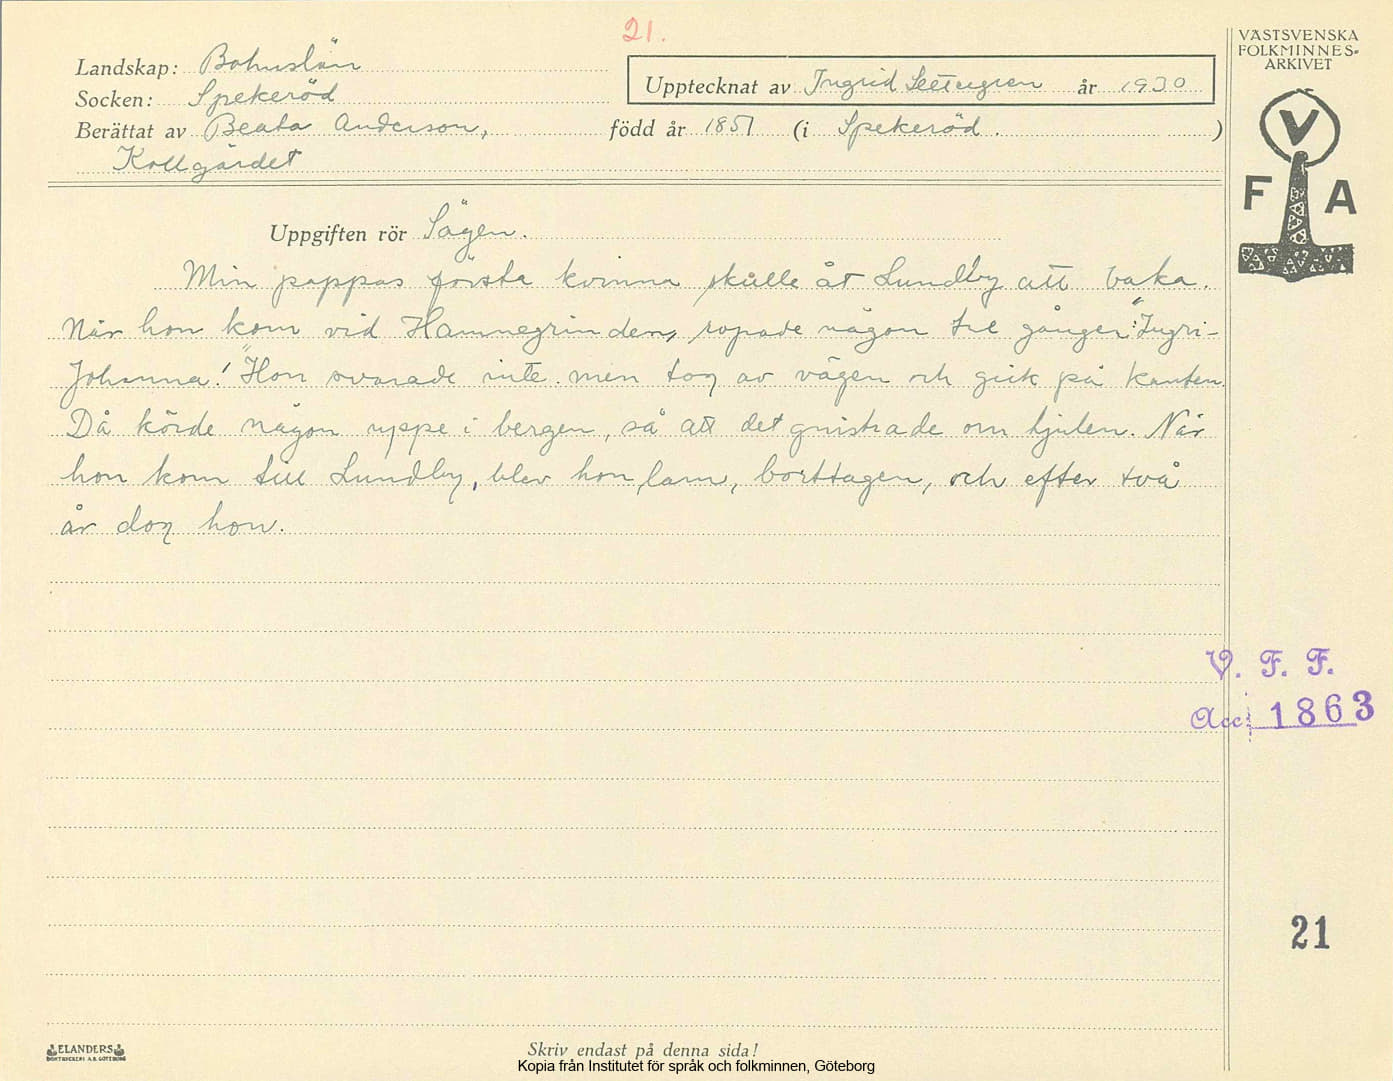 21.
VÄSTSVENSKA
FOLKMINNES-
ARKIVET
Landskap: Bohuslän
Upptecknat av Ingrid år 1930
Socken: Spekeröd
Berättat av Beata Anderson, född år 1851 (i Spekeröd. )
Kollgärdet
V
F A
Uppgiften rör Sägen.
Min pappas första kvinna skulle åt Lundby att vaka.
När hon kom vid Hamnegrinden, ropade någon tre gånger: "Ingri-
Johanna!" Hon svarade inte men tog av vägen och gick på kanten.
Då körde någon uppe i bergen, så att det gnistrade om hjulen. När
hon kom till Lundby, blev hon lam, borttagen, och efter två
år dog hon.
V. F. F.
Acc: 1863
21
ELANDERS
BOKTRYCKERI A.B. GÖTEBORG
Skriv endast på denna sida!
Kopia från Institutet för språk och folkminnen, Göteborg